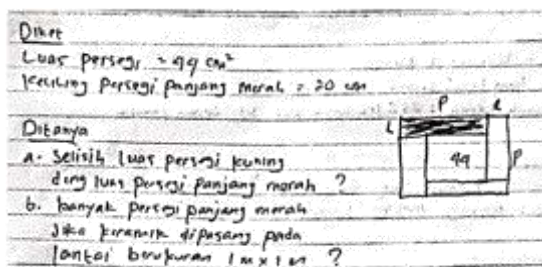 Diket
Luas persegi = 49 cm²
Keliling Persegi Panjang merah = 20 cm
P l
Ditanya
L
a. Selisih luas persegi kuning
49 P
dng luas persegi panjang merah ?
b. banyak persegi panjang merah
Jika keramik dipasang pada
lantai berukuran 1 m x 1 m ?